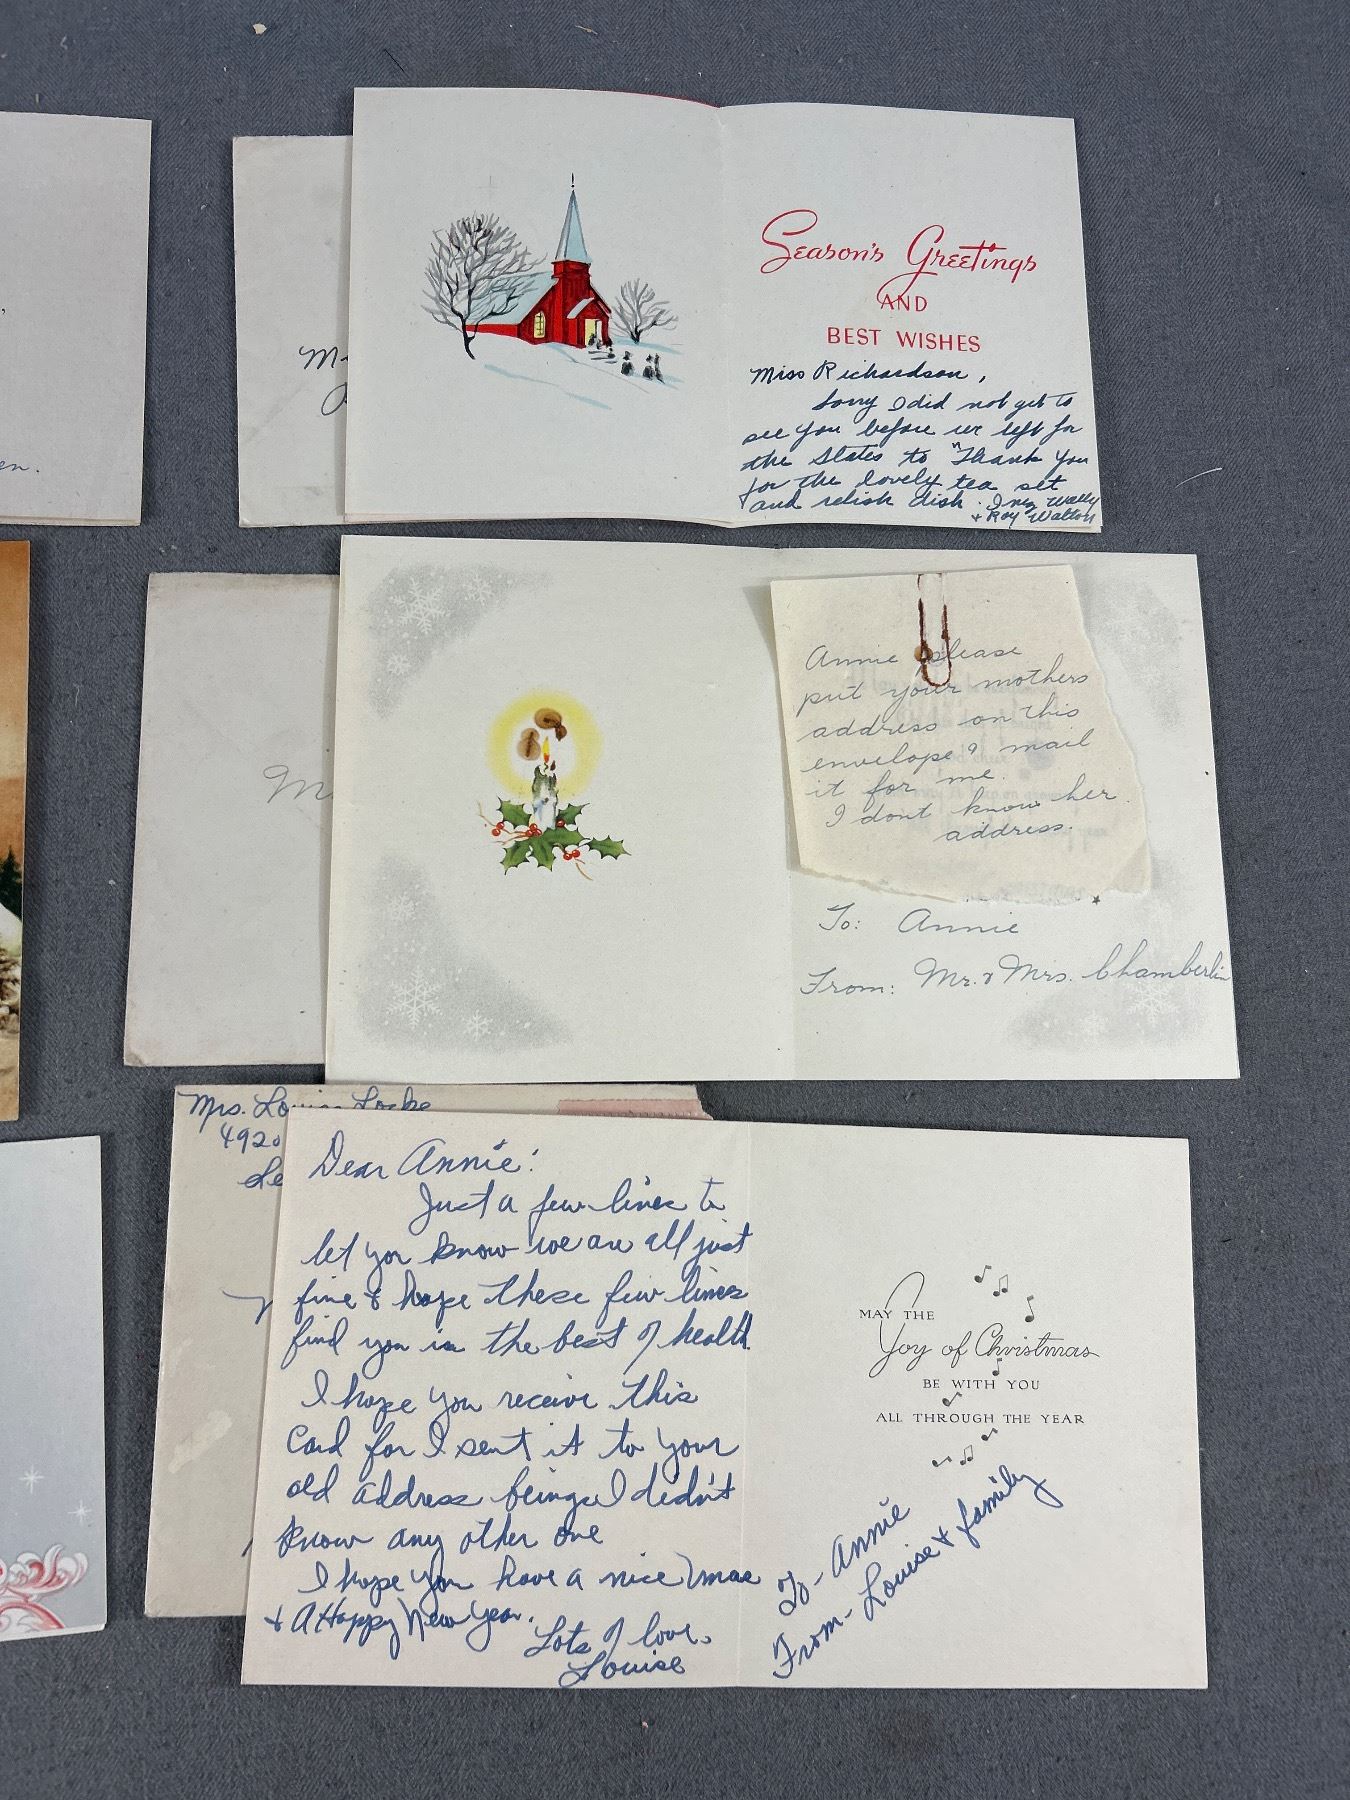 en.
M
Season's Greetings
AND
BEST WISHES
Miss Richardson,
Sorry I did not get to
see you before we left for
the States to "Thank You
for the lovely tea set
and relish dish. Inez Wally
+ Roy Walton
M
Annie please
put your mothers
address on this
envelope & mail
it for me.
I dont know her
address.
To: Annie
From: Mr. & Mrs. Chamberlin
Mrs. Louise Locke
4920
Le
Dear Annie:
Just a few lines to
let you know we are all just
fine & hope these few lines
find you in the best of health.
I hope you receive this
Card for I sent it to your
old address being I didn't
know any other one
I hope you have a nice Xmas
& A Happy New Year.
Lots of love.
Louise
MAY THE
Joy of Christmas
BE WITH YOU
ALL THROUGH THE YEAR
To - Annie
From - Louise & family